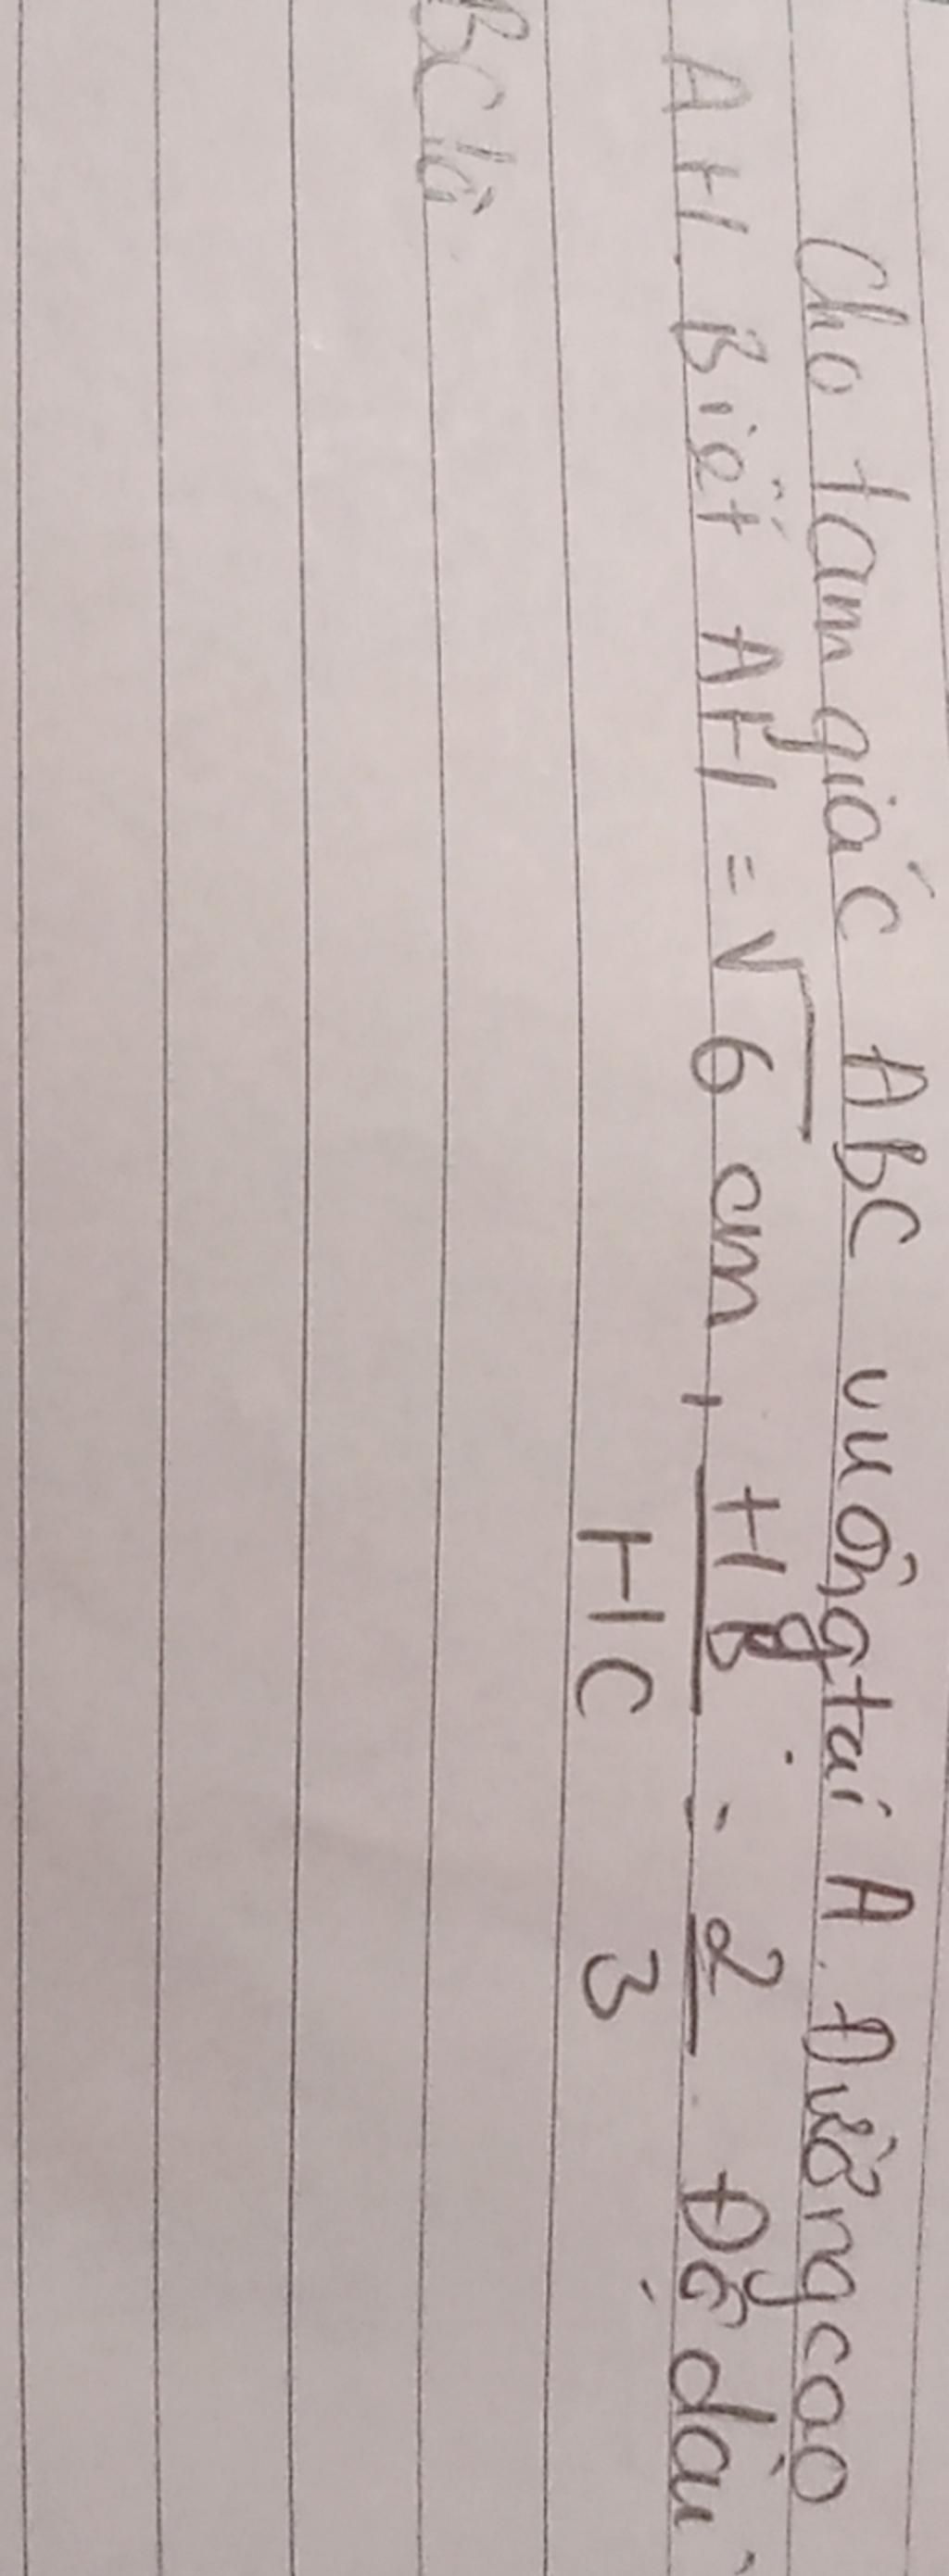 Cho tam giác ABC vuông tại A. Đường cao
AH. Biết AH = √6 cm, HB/HC = 2/3. Độ dài
BC là